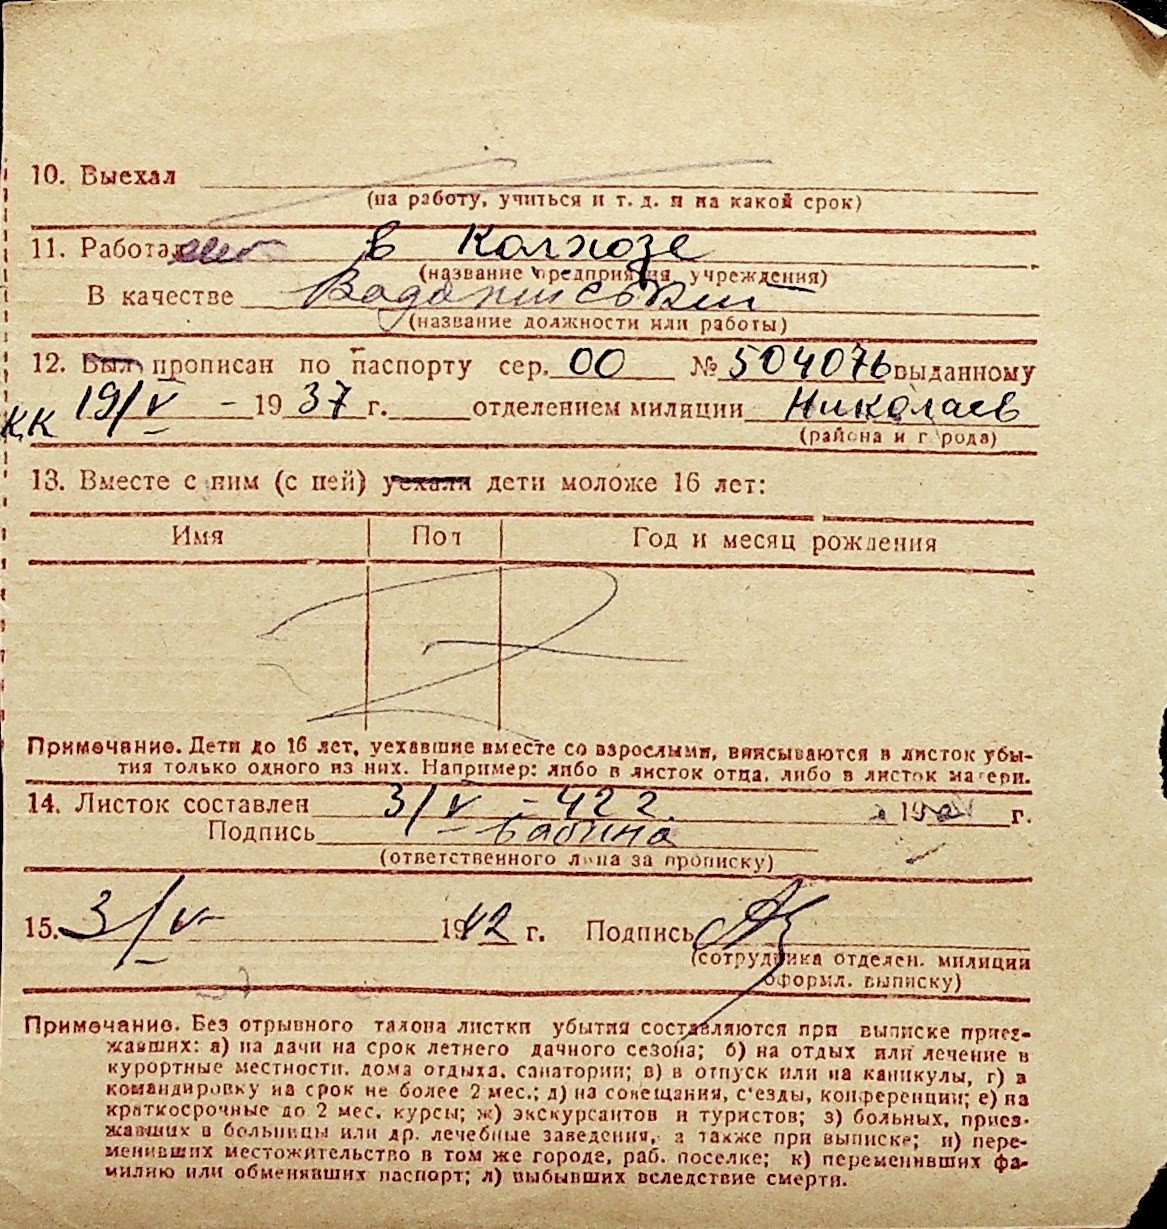 10. Выехал
(на работу, учиться и т. д. и на какой срок)
11. Работает в Колхозе
(название предприятия, учреждения)
В качестве
(название должности или работы)
12. Был прописан по паспорту сер. 00 № 504076 выданному
КК 19/V - 1937 г. отделением милиции Николаев
(района и города)
13. Вместе с ним (с ней) уехали дети моложе 16 лет:
Имя Пол Год и месяц рождения
Примечание. Дети до 16 лет, уехавшие вместе со взрослыми, вписываются в листок убы-
тия только одного из них. Например: либо в листок отца, либо в листок матери.
14. Листок составлен 3/V - 42 г. 19 г.
Подпись Бабина
(ответственного лица за прописку)
15. 3/V 1942 г. Подпись
(сотрудника отделен. милиции
оформл. выписку)
Примечание. Без отрывного талона листки убытия составляются при выписке приез-
жавших: а) на дачи на срок летнего дачного сезона; б) на отдых или лечение в
курортные местности, дома отдыха, санатории; в) в отпуск или на каникулы, г) в
командировку на срок не более 2 мес.; д) на совещания, с'езды, конференции; е) на
краткосрочные до 2 мес. курсы; ж) экскурсантов и туристов; з) больных, приез-
жавших в больницы или др. лечебные заведения, а также при выписке; и) пере-
менивших местожительство в том же городе, раб. поселке; к) переменивших фа-
милию или обменявших паспорт; л) выбывших вследствие смерти.